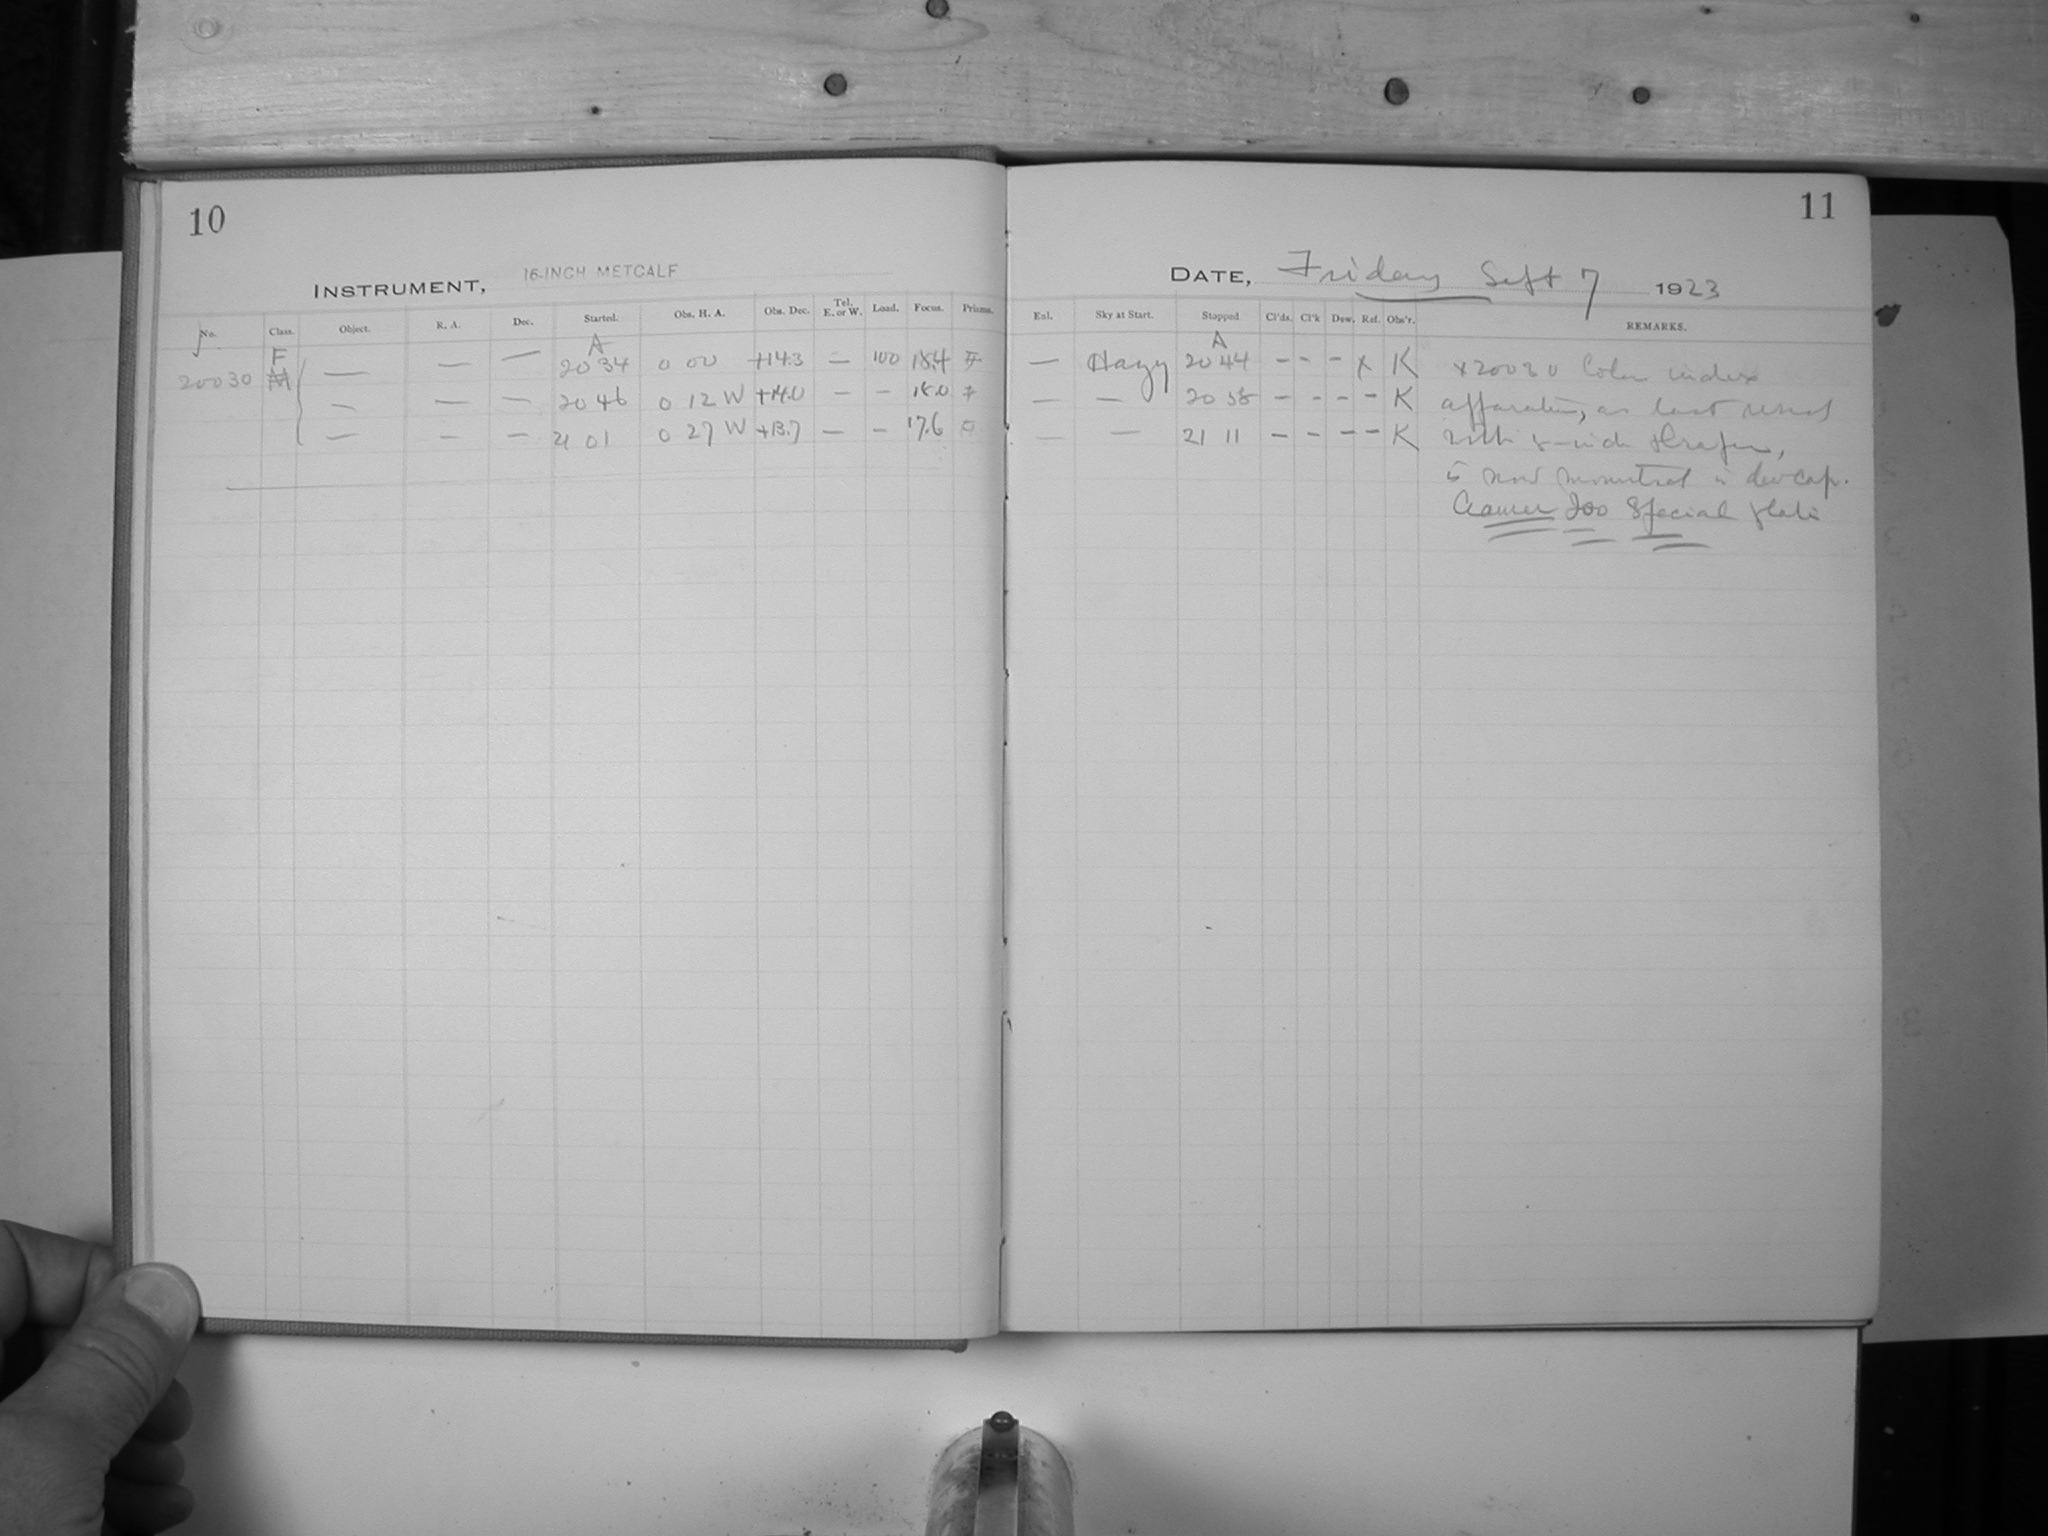 10
INSTRUMENT, 16-INCH METCALF
No. Class. Object. R. A. Dec. Started. Obs. H. A. Obs. Dec. Tel. E. or W. Load. Focus. Prisms.
F A
20030 M — — — 20 34 0 00 +14.3 — 100 18.4
— — — 20 46 0 12 W +14.0 — — 18.0
— — — 21 01 0 27 W +13.7 — — 17.6
11
DATE, Friday Sept 7 1923
Exl. Sky at Start. Stopped. Cl'ds. Cl'k Dew. Ref. Obs'r. REMARKS.
A
— Hazy 20 44 - - - x K x20030 Color index
— — 20 58 - - - - K apparatus, as last used
— — 21 11 - - - - K with 8-inch Draper,
is now mounted in dewcap.
Cramer 200 Special plate